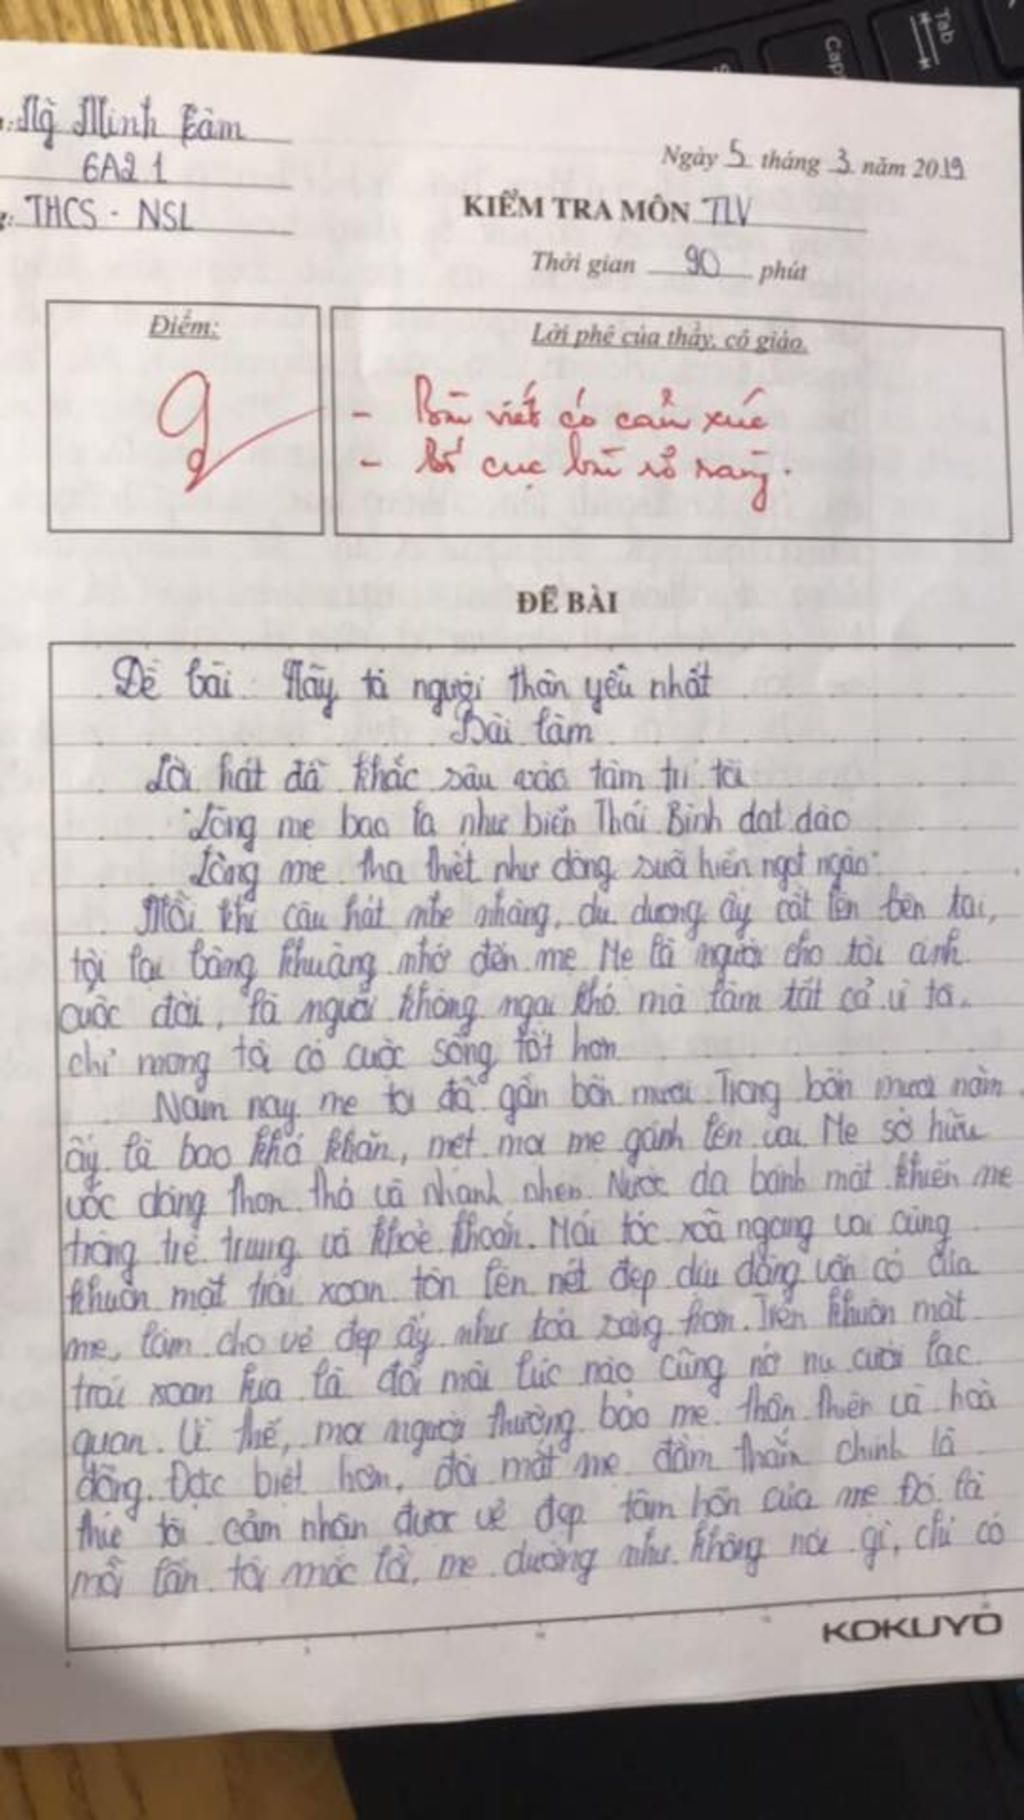 Ngô Minh Lâm
6A2.1
THCS - NSL
Ngày 5 tháng 3 năm 2019
KIỂM TRA MÔN TLV
Thời gian 90 phút
Điểm:
9
Lời phê của thầy, cô giáo.
- Bài viết có cảm xúc
- Bố cục bài rõ ràng.
ĐỀ BÀI
Đề bài: Hãy tả người thân yêu nhất
Bài làm
Lời hát đã khắc sâu vào tâm trí tôi
"Lòng mẹ bao la như biển Thái Bình dạt dào
Lòng mẹ tha thiết như dòng suối hiền ngọt ngào"
Mỗi khi câu hát nhẹ nhàng, du dương ấy cất lên bên tai,
tôi lại bâng khuâng nhớ đến mẹ. Mẹ là người cho tôi cảnh
cuộc đời, là người không ngại khó mà làm tất cả vì tôi,
chỉ mong tôi có cuộc sống tốt hơn
Năm nay mẹ tôi đã gần bốn mươi. Trong bốn mươi năm
ấy là bao khó khăn, mệt mỏi mẹ gánh lên vai. Mẹ sở hữu
vóc dáng thon thả và nhanh nhẹn. Nước da bánh mật khiến mẹ
trông trẻ trung và khỏe khoắn. Mái tóc xoã ngang vai cùng
khuôn mặt trái xoan tôn lên nét đẹp dịu dàng vốn có của
mẹ, làm cho vẻ đẹp ấy như toả sáng hơn. Trên khuôn mặt
trái xoan kia là đôi môi lúc nào cũng nở nụ cười lạc
quan. Vì thế, mọi người thường bảo mẹ thân thiện và hoà
đồng. Đặc biệt hơn, đôi mắt mẹ đằm thắm chính là
thứ tôi cảm nhận được vẻ đẹp tâm hồn của mẹ. Đó là
mỗi lần tôi mắc lỗi, mẹ dường như không nói gì, chỉ có
KOKUYO
Tab
Cap